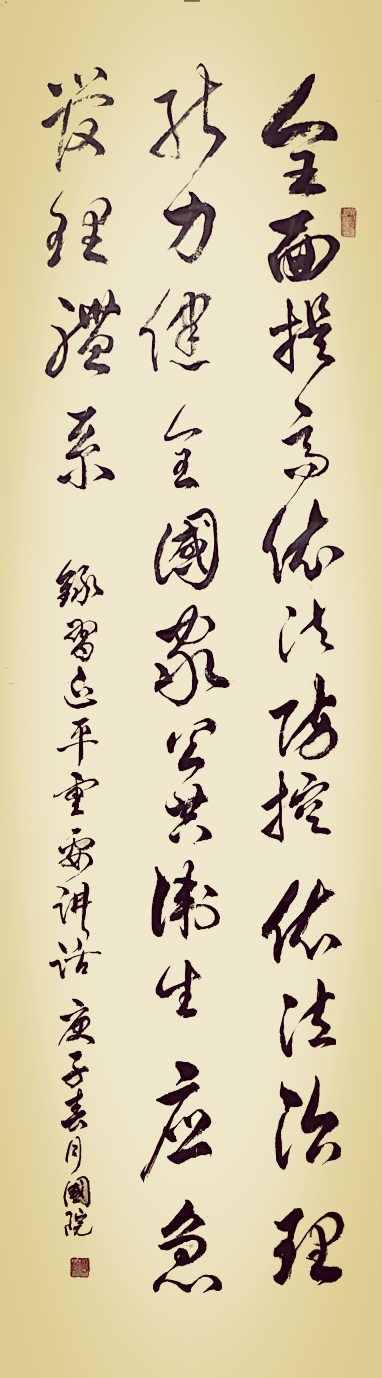 全面提高依法防控依法治理
能力健全國家公共衛生应急
管理體系
錄習近平重要讲话 庚子春月國院